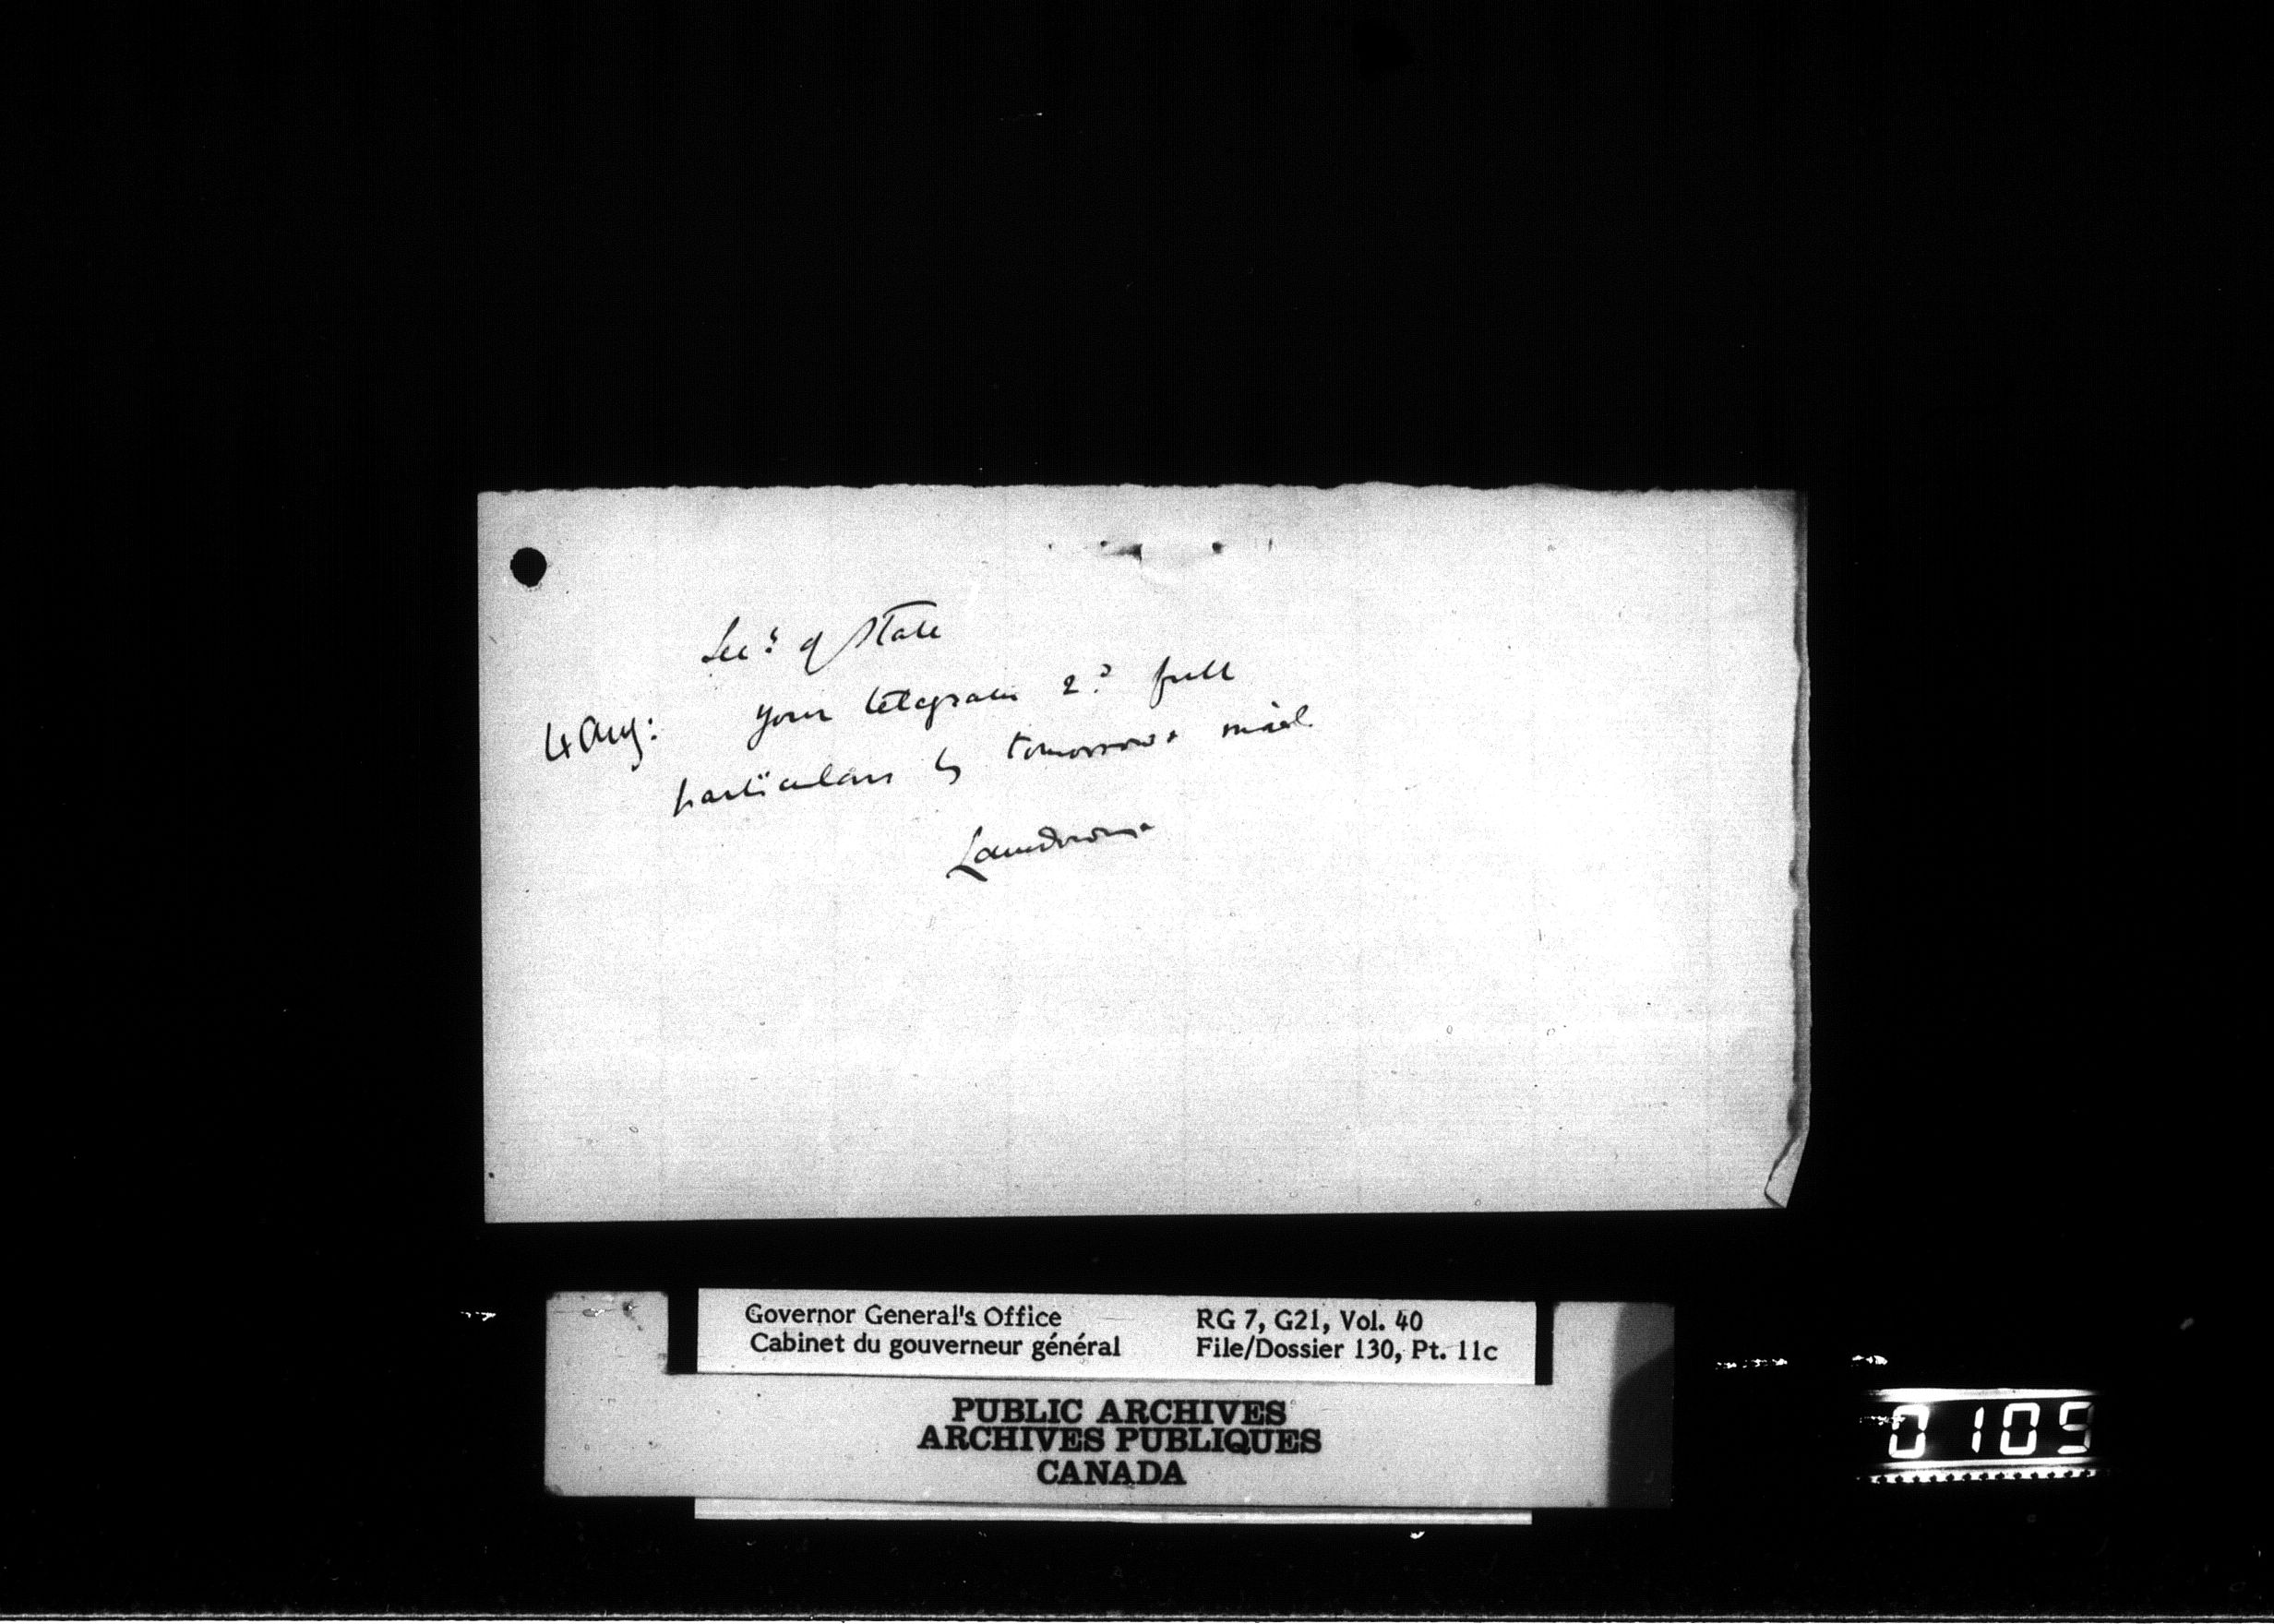 Secy of State
4 Aug: Your telegram 2d full
particulars by tomorrows mail
Lansdowne
Governor General's Office RG 7, G21, Vol. 40
Cabinet du gouverneur général File/Dossier 130, Pt. 11c
PUBLIC ARCHIVES
ARCHIVES PUBLIQUES
CANADA
0105